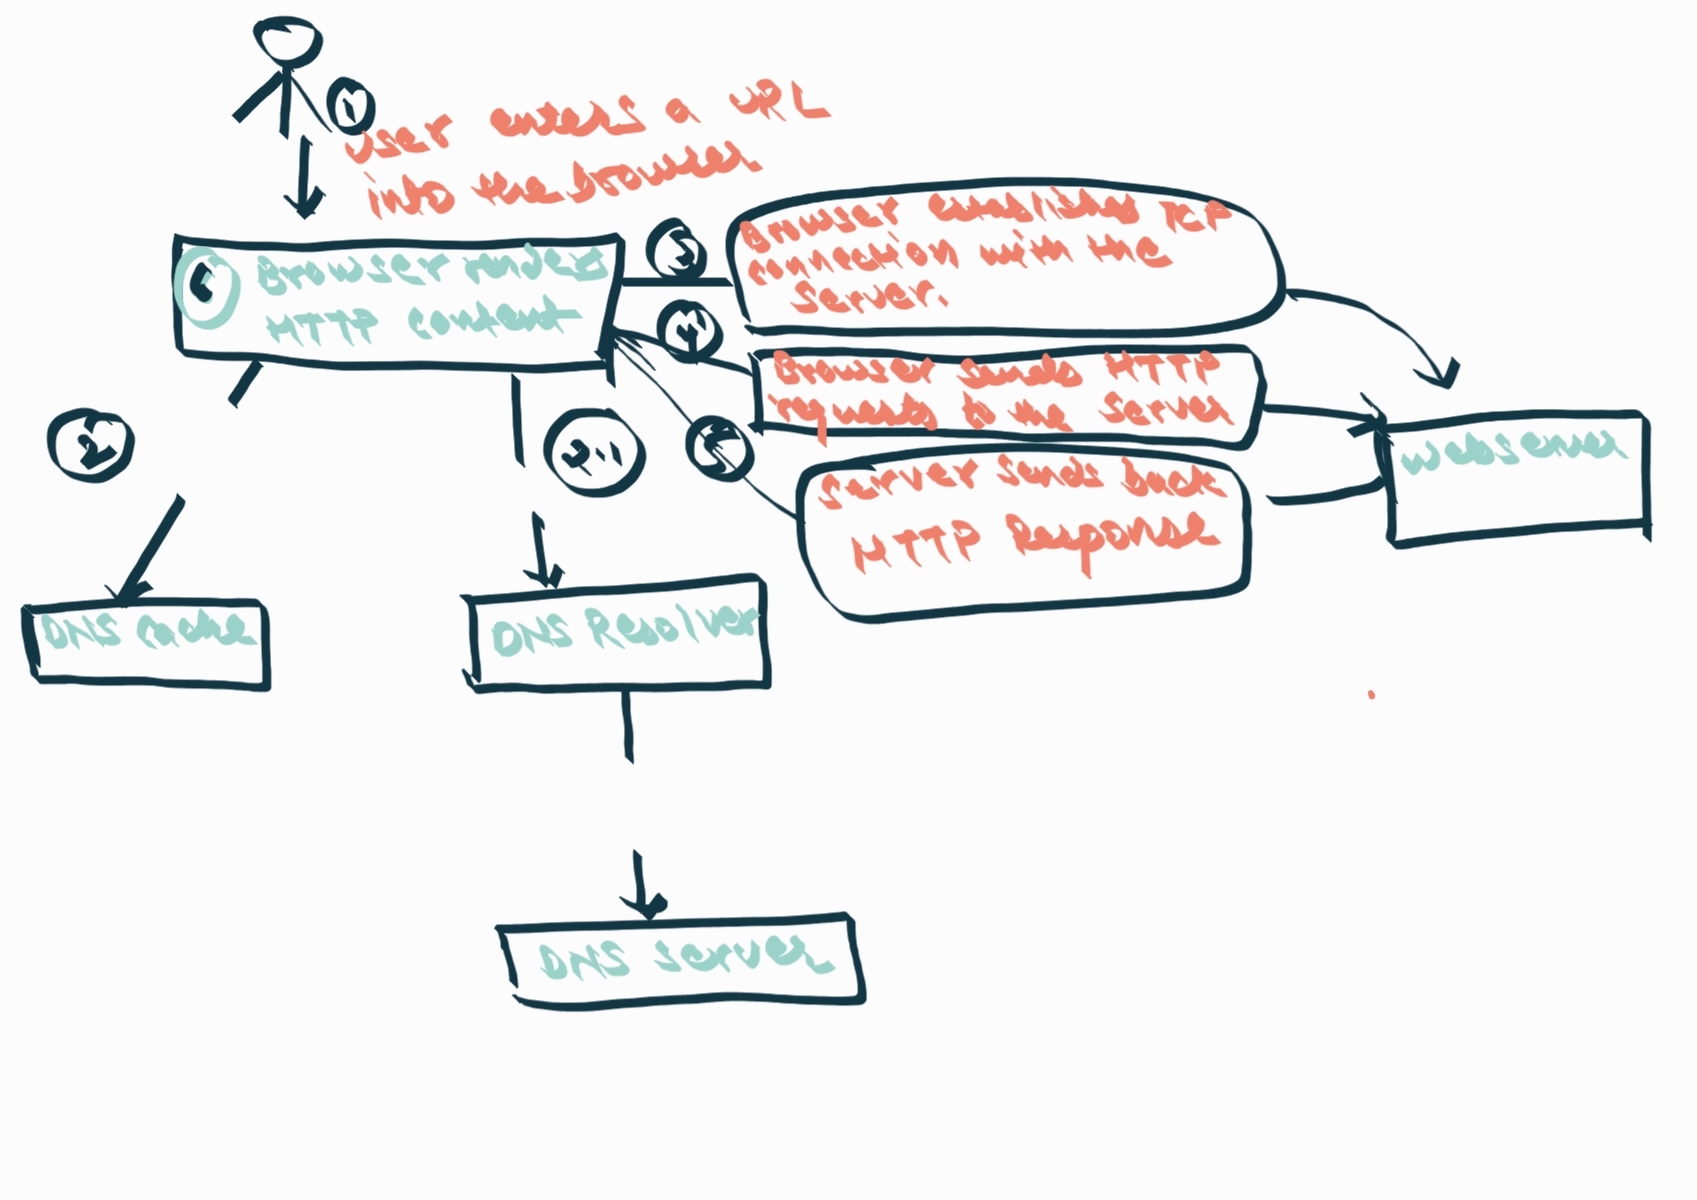 1
User enters a URL
into the browser
Browser renders
HTTP content
3
Browser establishes TCP
connection with the
server.
4
Browser sends HTTP
requests to the server
5
Server sends back
HTTP Response
Webserver
2
DNS cache
DNS Resolver
DNS server